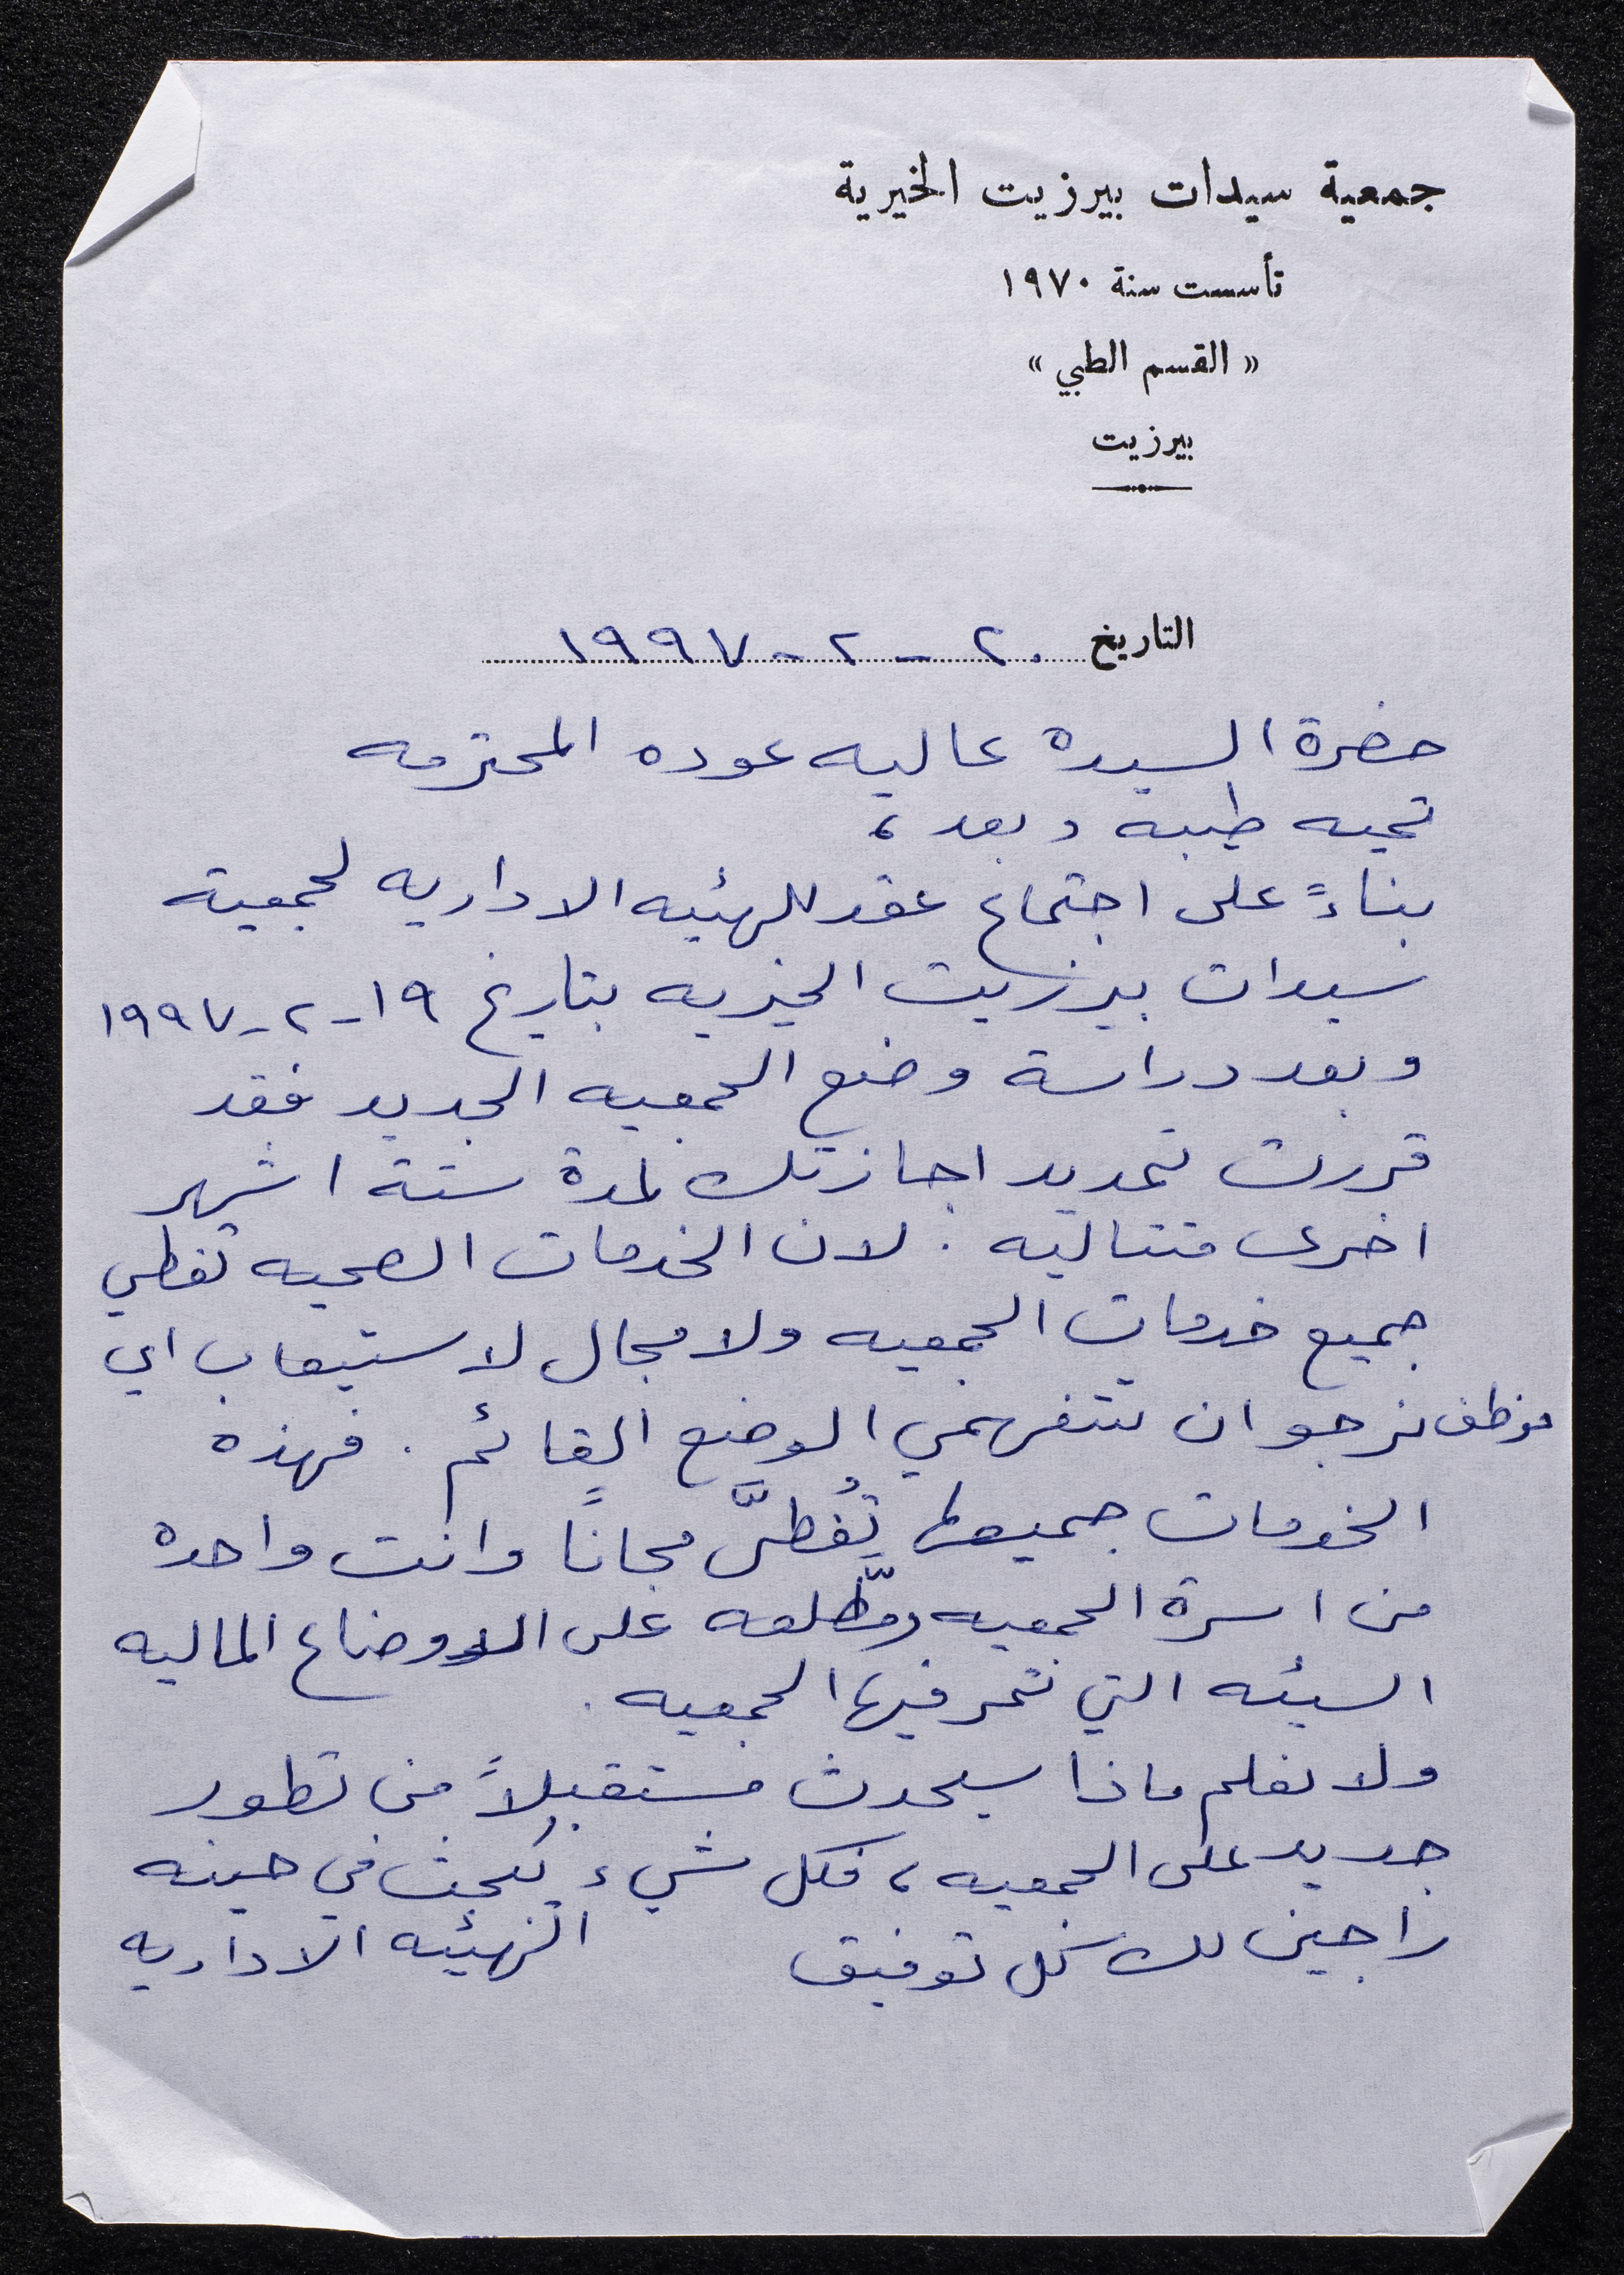 جمعية سيدات بيرزيت الخيرية
تأسست سنة ١٩٧٠
« القسم الطبي »
بيرزيت
التاريخ ٢٠ - ٢ - ١٩٩٧
حضرة السيدة عاليه عوده المحترمه
تحيه طيبه وبعد ،
بناءً على اجتماع عقد للهيئه الاداريه لجمعية
سيدات بيرزيت الخيريه بتاريخ ١٩-٢-١٩٩٧
وبعد دراسة وضع الجمعيه الجديد فقد
قررت تمديد اجازتك لمدة ستة اشهر
اخرى متتاليه . لان الخدمات الصحيه تغطي
جميع خدمات الجمعيه ولا مجال لاستيعاب اي
موظف نرجو ان تتفهمي الوضع القائم . فهذه
الخدمات جميعها تُغطىَّ مجاناً وانت واحده
من اسرة الجمعيه ومطّلعه على الاوضاع الماليه
السيئه التي تمر فيها الجمعيه .
ولا نعلم ماذا سيحدث مستقبلاً من تطور
جديد على الجمعيه ، فكل شيء يُبحث في حينه
راجين لك كل توفيق الهيئه الاداريه